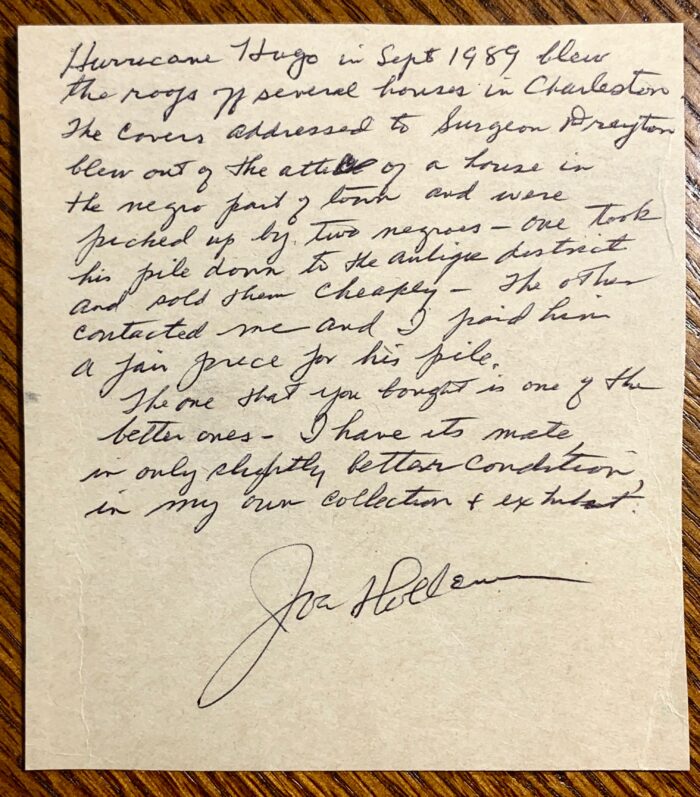 Hurricane Hugo in Sept 1989 blew
the roofs off several houses in Charleston.
The covers addressed to Surgeon Drayton
blew out of the attic of a house in
the negro part of town and were
picked up by two negroes – one took
his pile down to the antique district
and sold them cheaply – The other
contacted me and I paid him
a fair price for his pile.
The one that you bought is one of the
better ones – I have its mate,
in only slightly better condition,
in my own collection & exhibit.
Joe Holleman